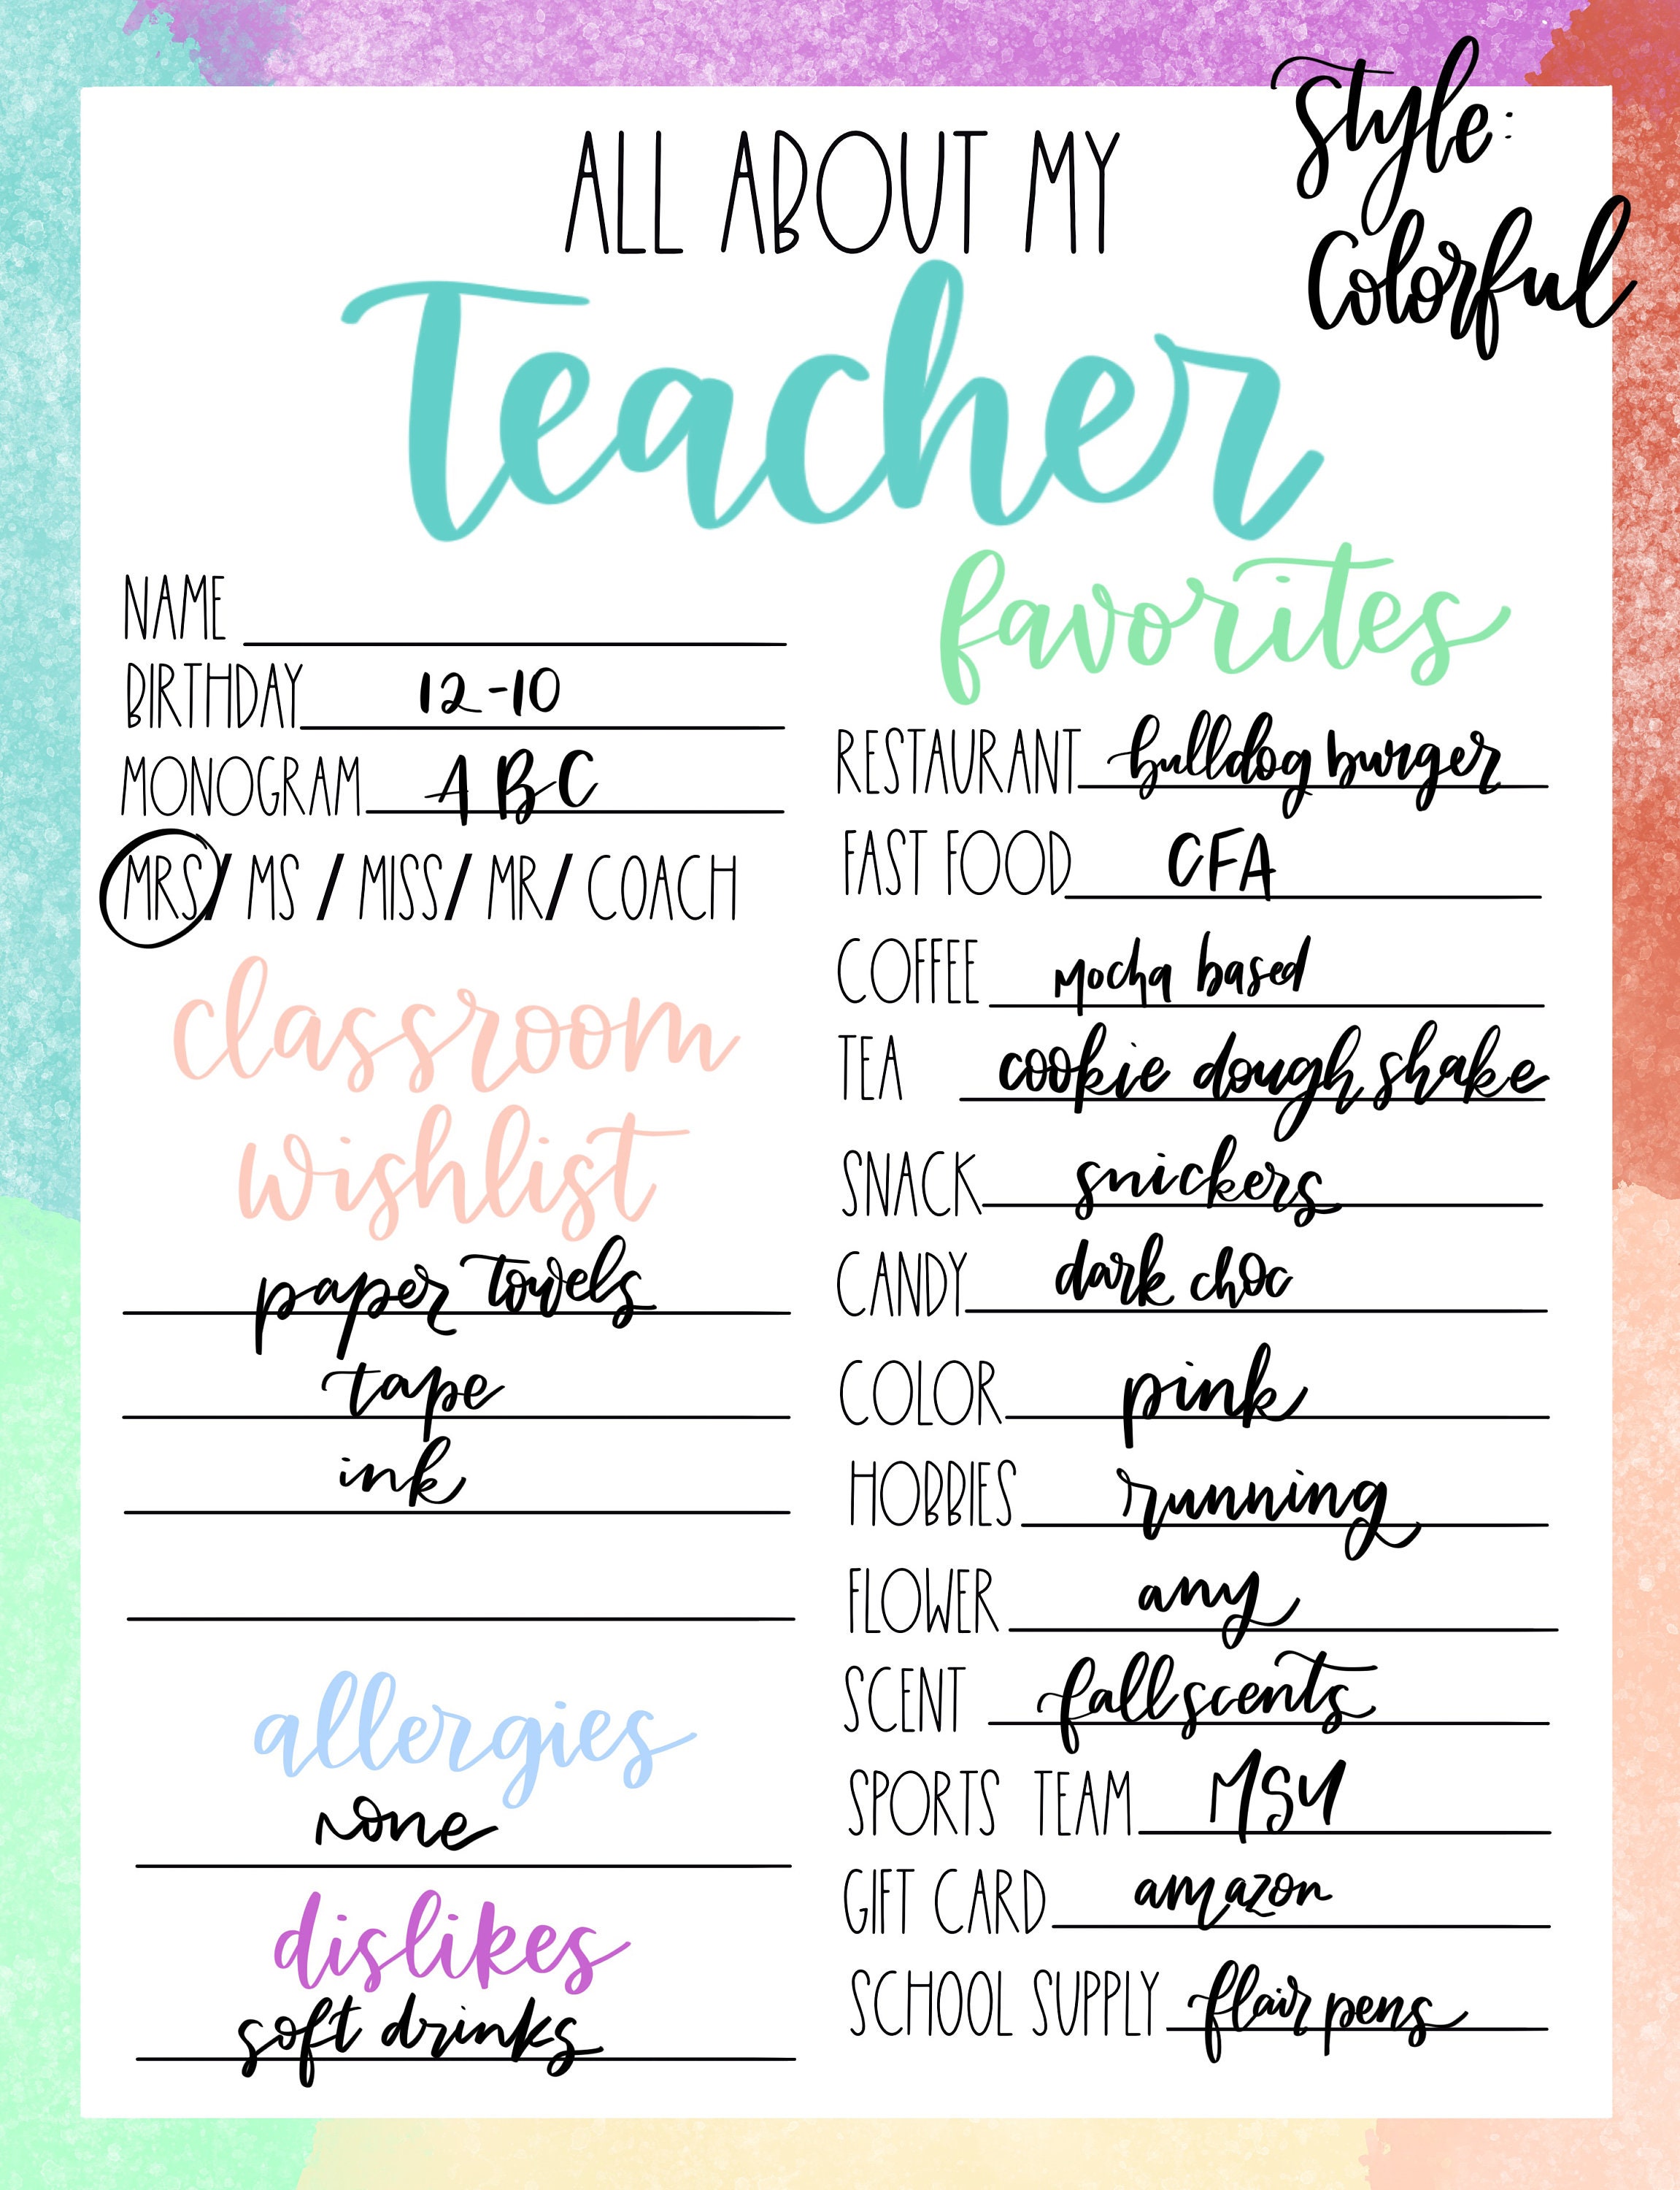 Style:
Colorful
ALL ABOUT MY
Teacher
NAME
BIRTHDAY 12-10
MONOGRAM ABC
MRS / MS / MISS / MR / COACH
classroom
wishlist
paper towels
tape
ink
allergies
none
dislikes
soft drinks
favorites
RESTAURANT bulldog burger
FAST FOOD CFA
COFFEE Mocha based
TEA cookie dough shake
SNACK snickers
CANDY dark choc
COLOR pink
HOBBIES running
FLOWER any
SCENT fall scents
SPORTS TEAM MSU
GIFT CARD amazon
SCHOOL SUPPLY flair pens